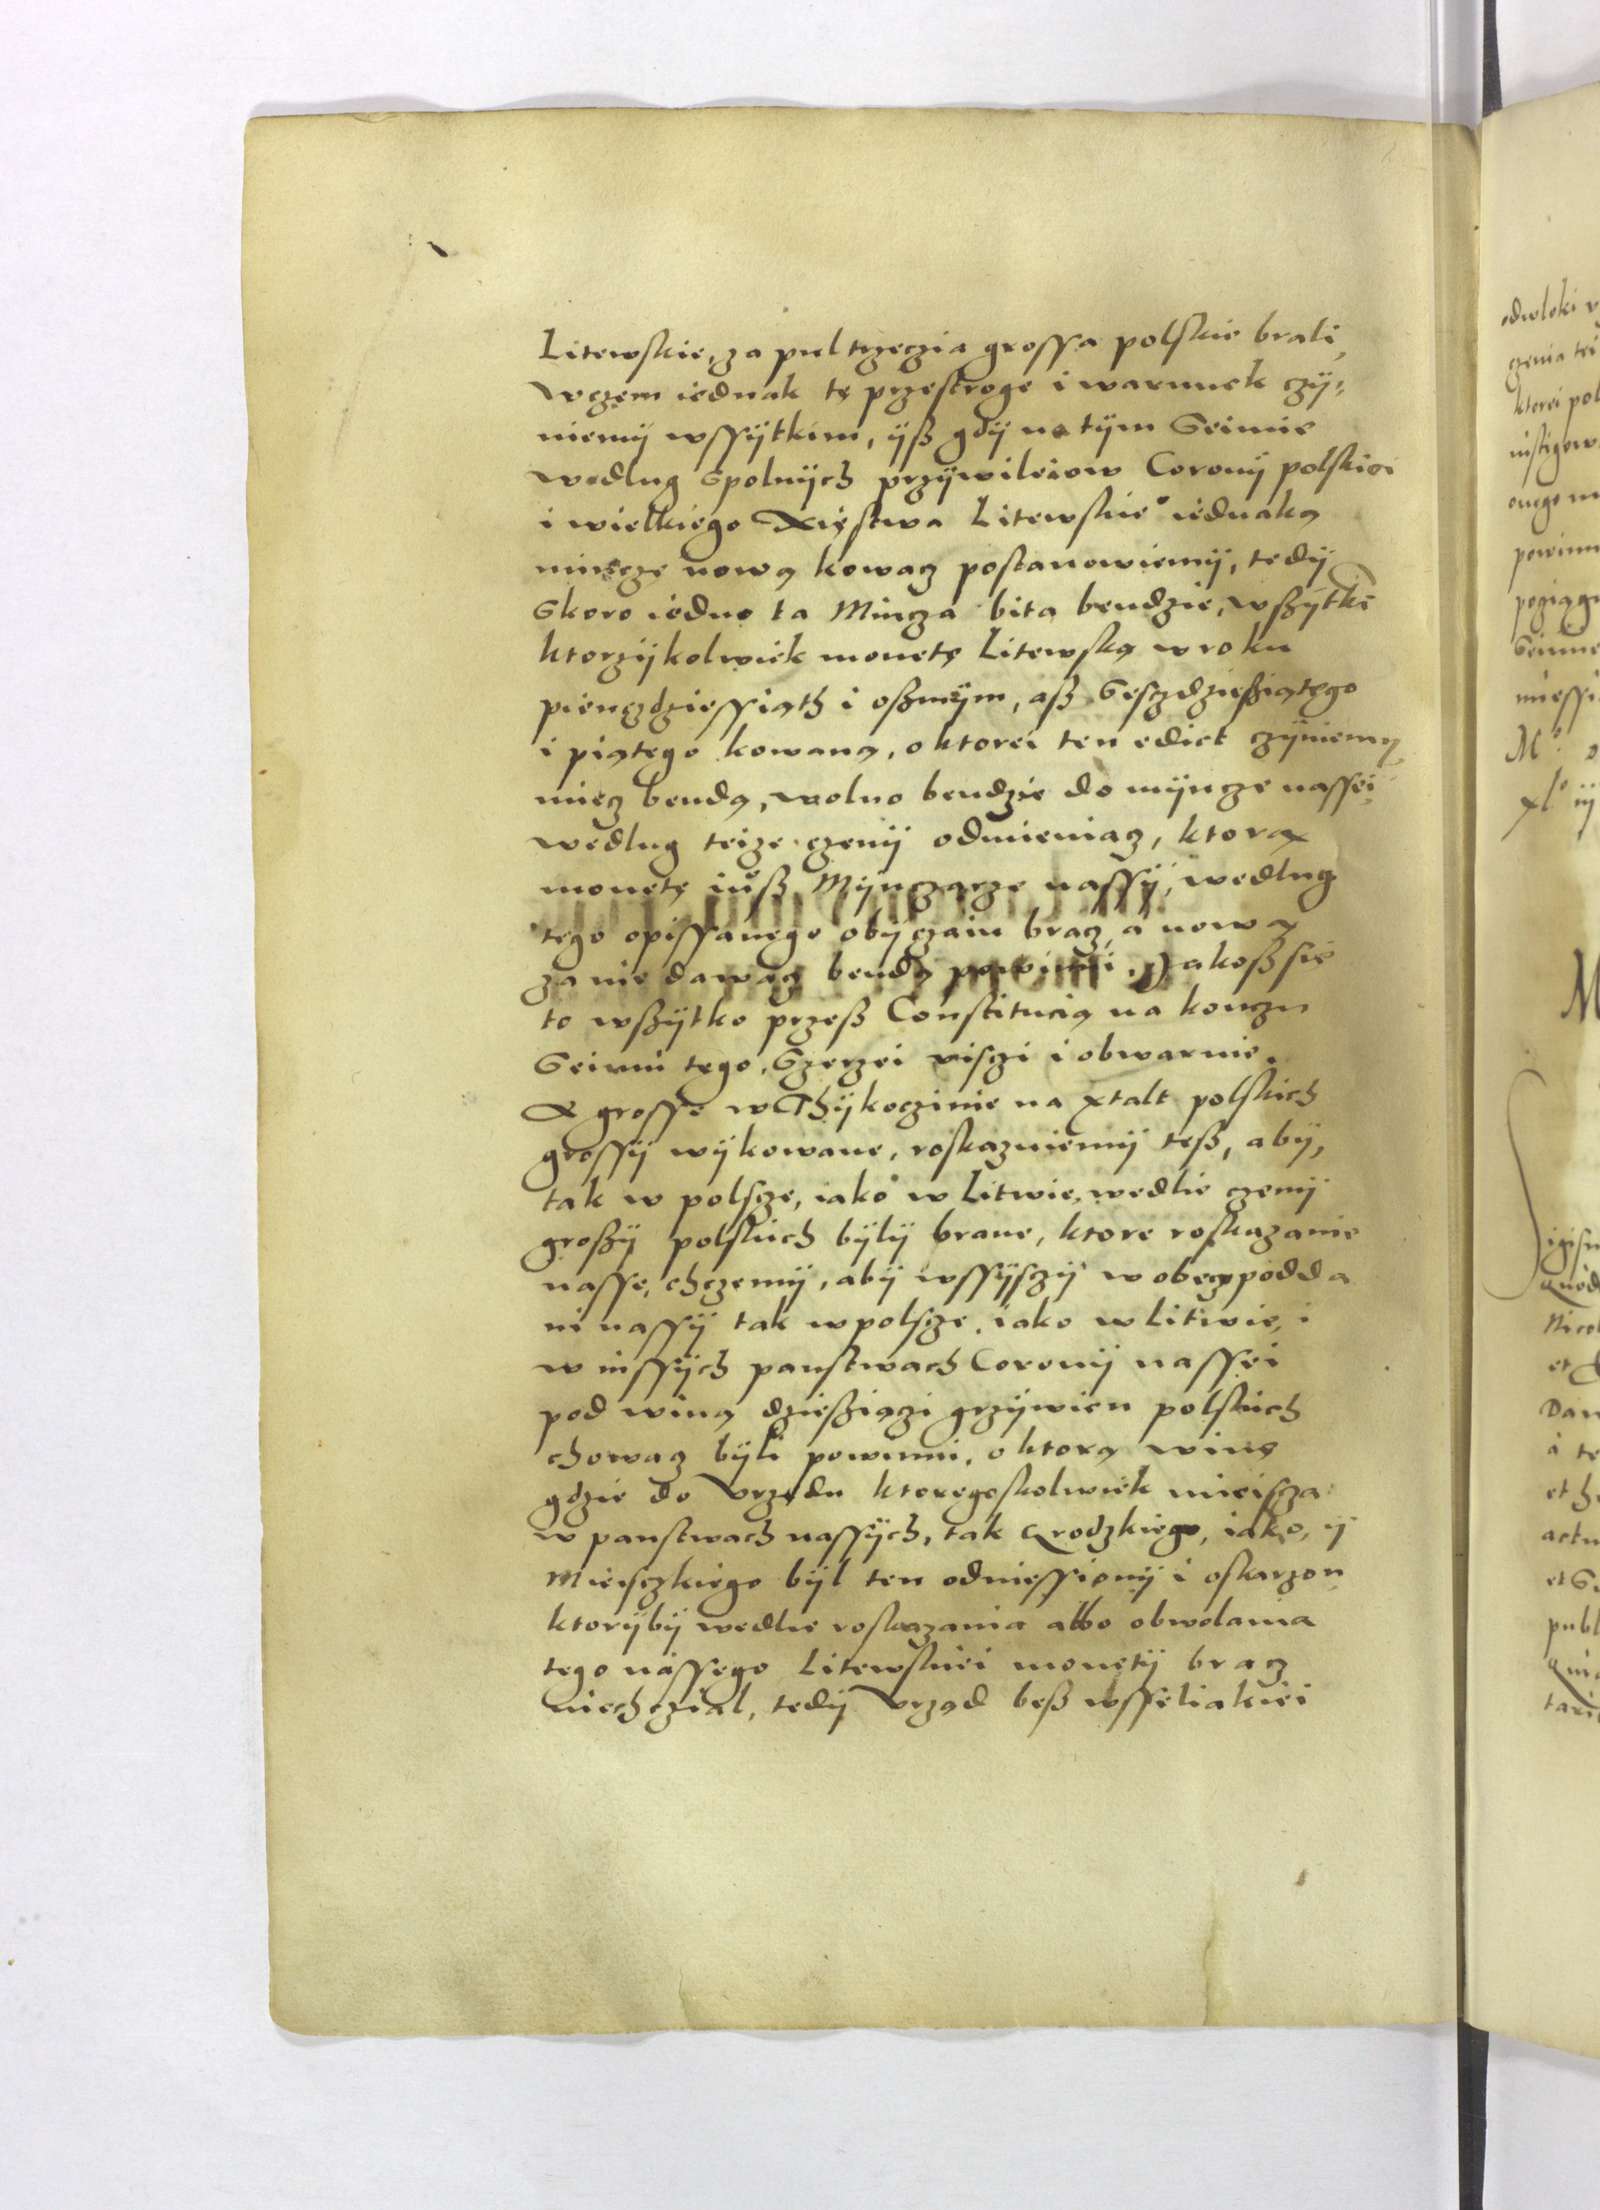 Litewskie, za pul trzeczia grossa polskie brali,
w czem iednak tę przestroge i warunek czÿ,
niemÿ wssÿtkim, ÿß gdÿ na tÿm Seimie
wedlug spolnÿch przÿwileiow Coronÿ polskiei
i wielkiego Xięstwa Litewskie° iednaką
minczę nową kowacz postanowiemÿ, tedÿ
Skoro iedno ta Mincza bita bendzie, wßÿtki
ktorzÿkolwiek monetę Litewską w roku
pienczdziessiąth i oßmÿm, aß Sesczdzießiątego
i piątego kowaną, o ktorei ten edict czÿniemÿ,
miecz bendą, wolno bendzie do mÿncze nassei
wedlug teize czenÿ odmieniacz, ktorą
monetę iuß Mÿnczarze nassÿ, wedlug
tego opissanego obÿczaiu bracz, a nową
za nie dawacz bendą powinni, Jakoß sie
to wßÿtko przeß Constitucią na konczu
Seimu tego, Szerzei visczi i obwaruie.
A grosse w Thÿkoczinie na xtalt polskich
grossÿ wÿkowane, roskazuiemÿ teß, abÿ,
tak w polscze, iako w Litwie, wedlie czenÿ
großÿ polskich bÿlÿ brane, ktore roskazanie
nasse, chczemÿ, abÿ wssÿsczÿ w obecz podda
ni nassÿ tak w polscze, iako w Litwie, i
w inssÿch panstwach Coronÿ nassei
pod winą dzießiączi grzÿwien polskich
chowacz bÿli powinni, o ktorą winę
gdzie do Vrzędu ktoregoskolwiek mieiscza
w panstwach nassÿch, tak Grodzkiego, iako, ÿ
Mieisczkiego bÿl ten odniessionÿ i oskarzon
ktorÿbÿ wedlie roskazania albo obwolania
tego nassego Litewskiei monetÿ bracz
niechczial, tedÿ Vrząd beß wsseliakiei